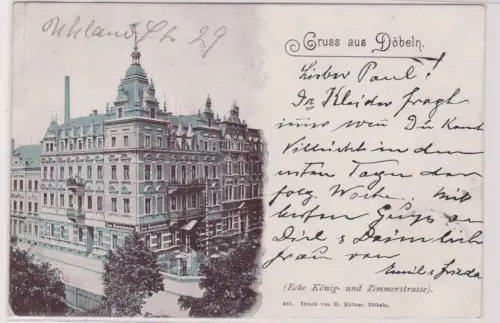 Uhland Str 29
Gruss aus Döbeln.
Lieber Paul!
Dr. Kleider fragt
immer wen Du komst
Villeicht in den
ersten Tagen der
folg. Woche. Mit
besten Gruss an
Dich &
frau von
Emil & Frieda
(Ecke König- und Zimmerstrasse).
Druck von H. Döbeln.